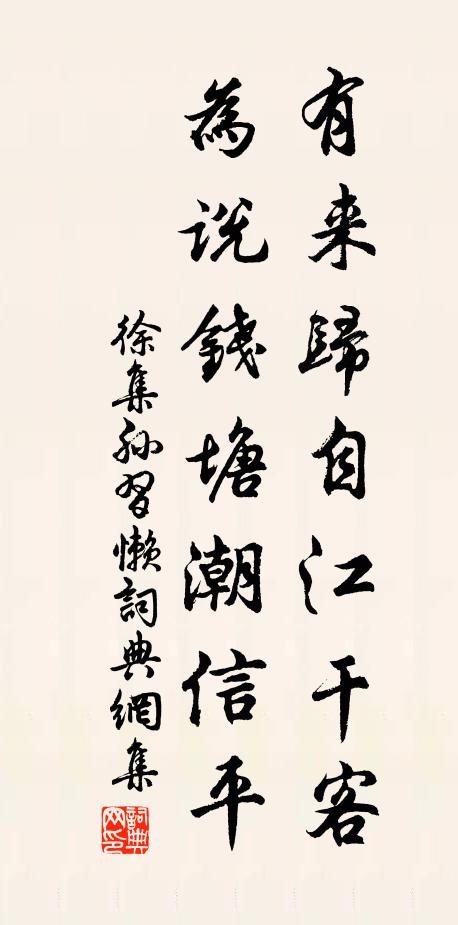 有来歸自江干客
為説錢塘潮信平
徐集孫習懶詞典網集
詞典網印